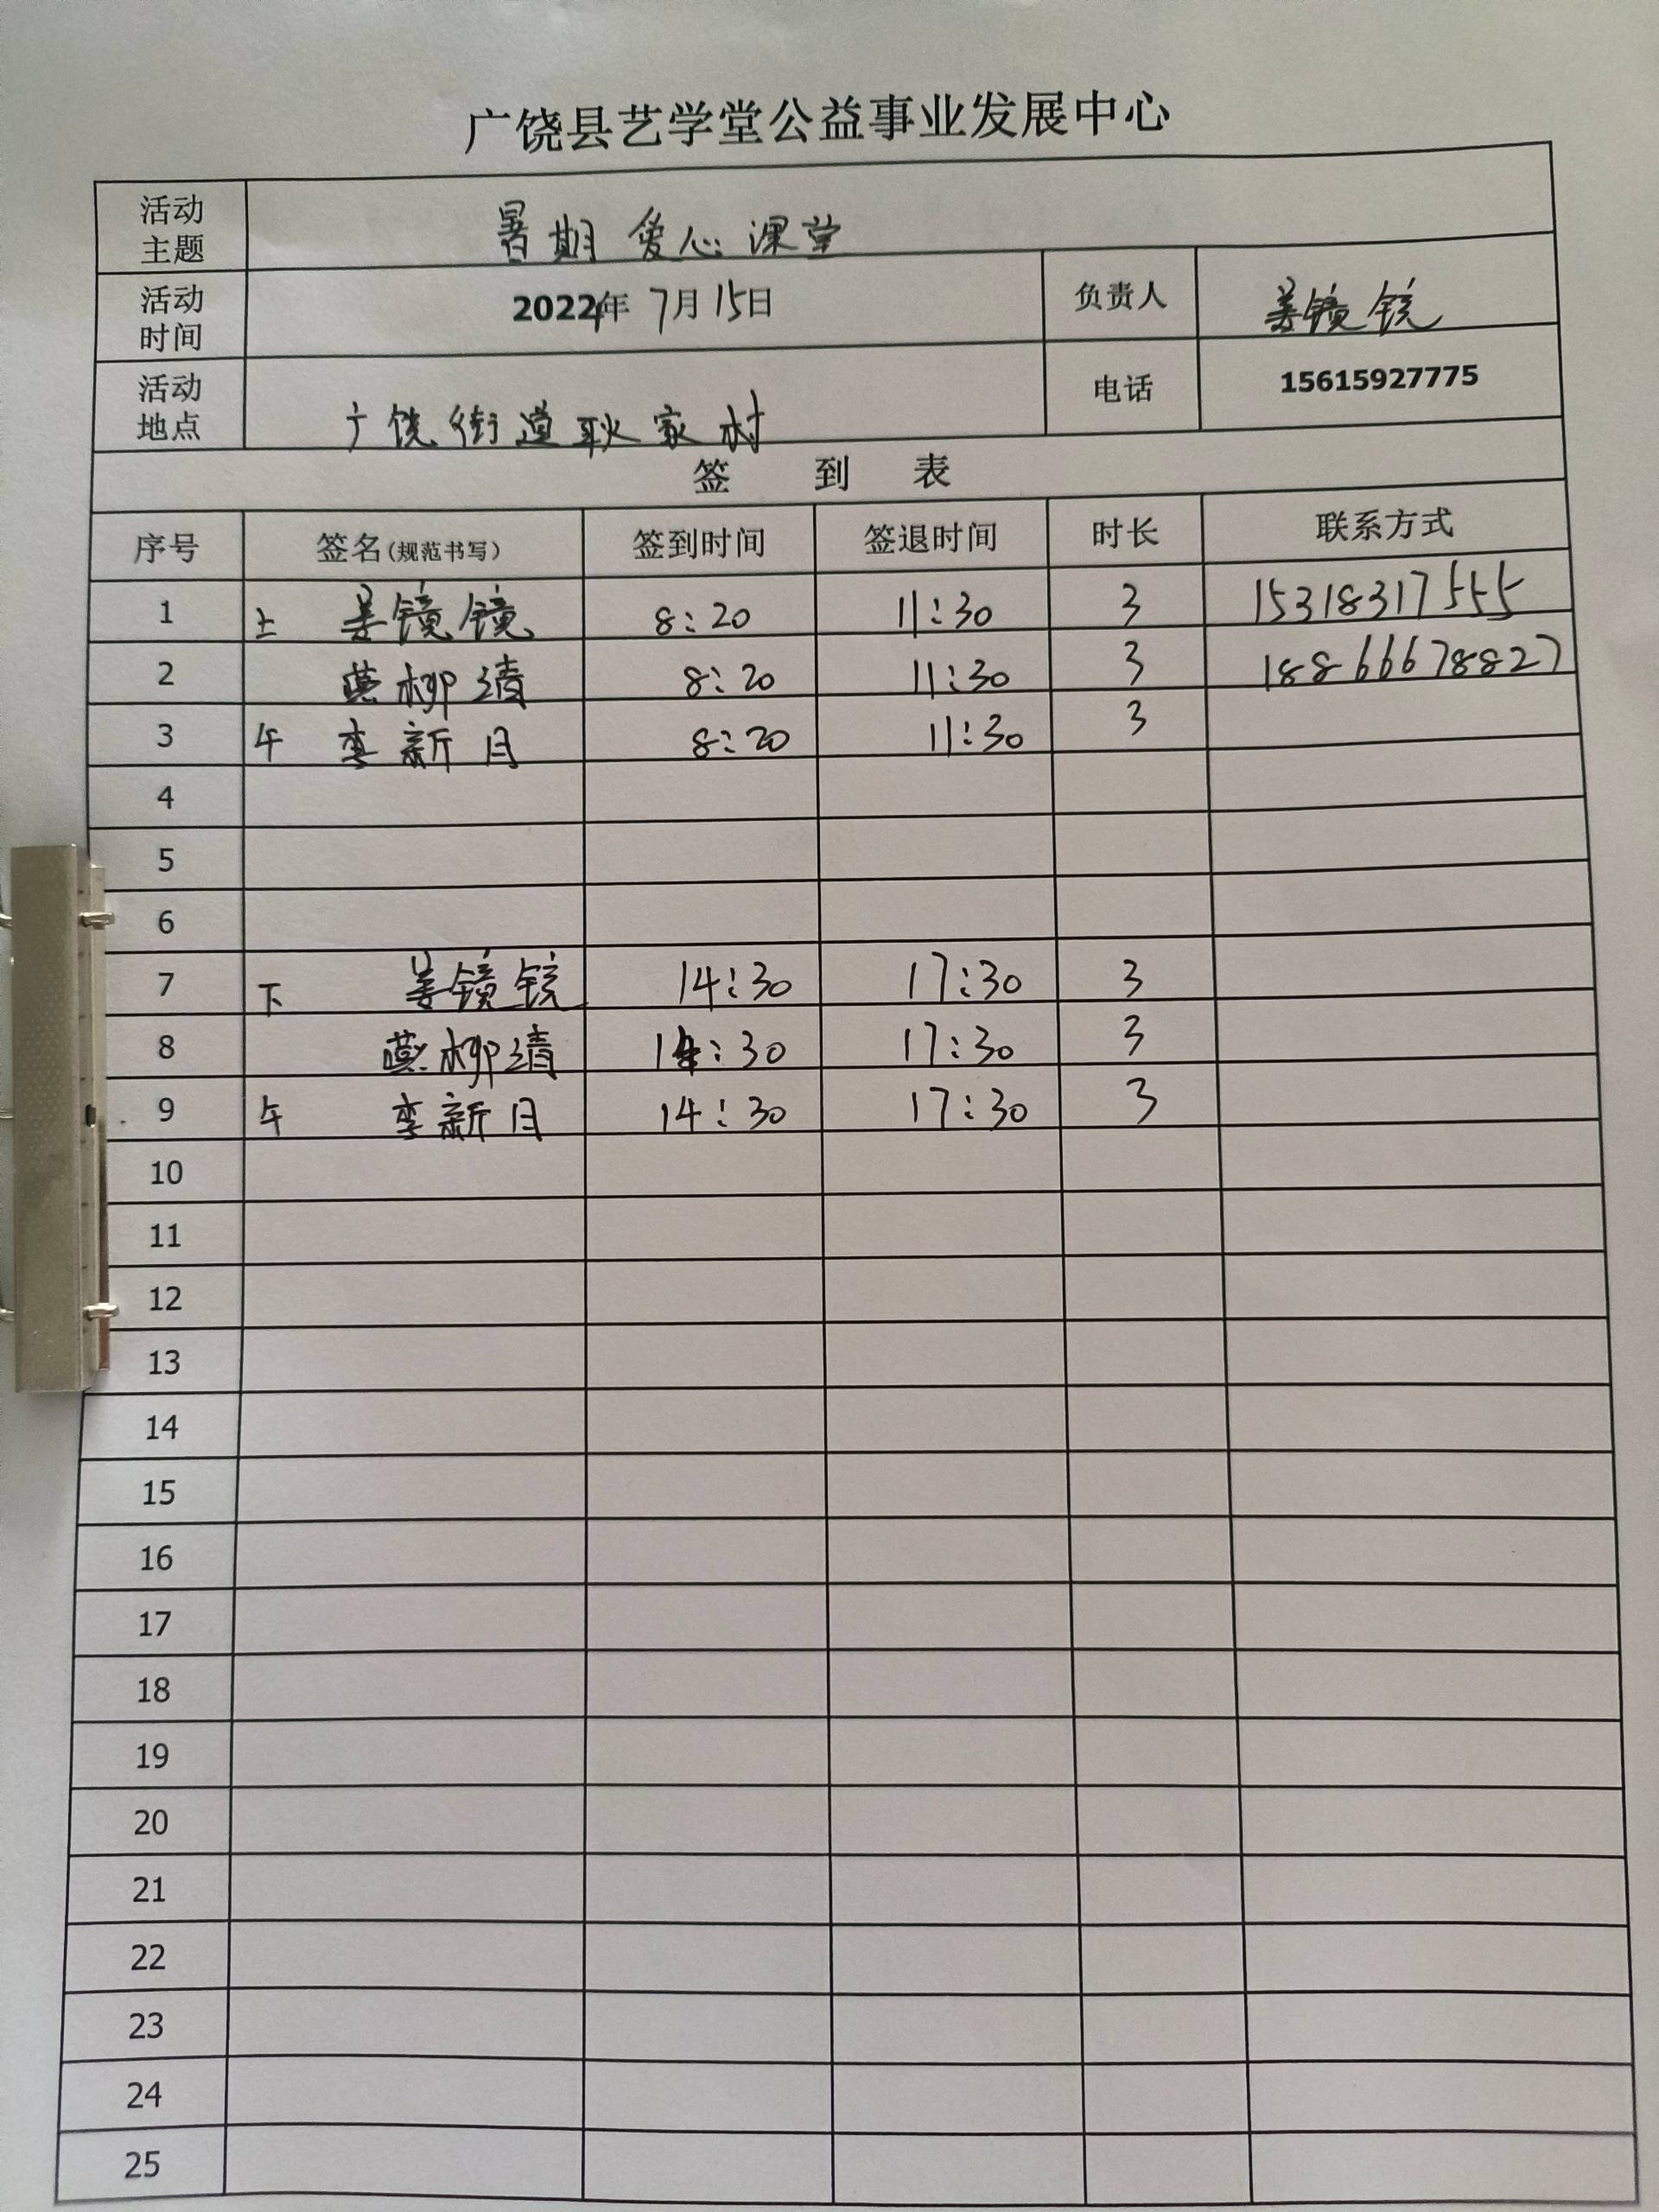 广饶县艺学堂公益事业发展中心
活动主题 暑期爱心课堂
活动时间 2024年7月15日 负责人 姜镜镜
活动地点 广饶街道耿家村 电话 15615927775
签 到 表
序号 签名(规范书写) 签到时间 签退时间 时长 联系方式
1 上 姜镜镜 8:20 11:30 3 15318317555
2 柳清 8:20 11:30 3 18866678827
3 午 李新月 8:20 11:30 3
4
5
6
7 下 姜镜镜 14:30 17:30 3
8 柳清 14:30 17:30 3
9 午 李新月 14:30 17:30 3
10
11
12
13
14
15
16
17
18
19
20
21
22
23
24
25